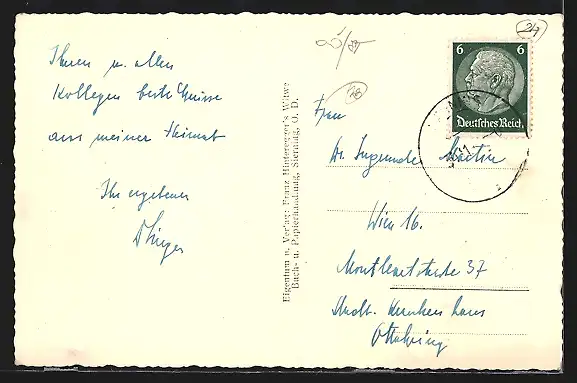 Ihnen u. allen
Kollegen beste Grüsse
aus meiner Heimat
Ihr ergebener
Eigentum u. Verlag: Franz Hinteregger's Witwe
Buch- u. Papierhandlung, Sierning, O. D.
24
18
6 6
Deutsches Reich
Frau
Dr. Ingunde Martin
Wien 16.
Montleartstraße 37
Städt. Krankenhaus
Ottakring